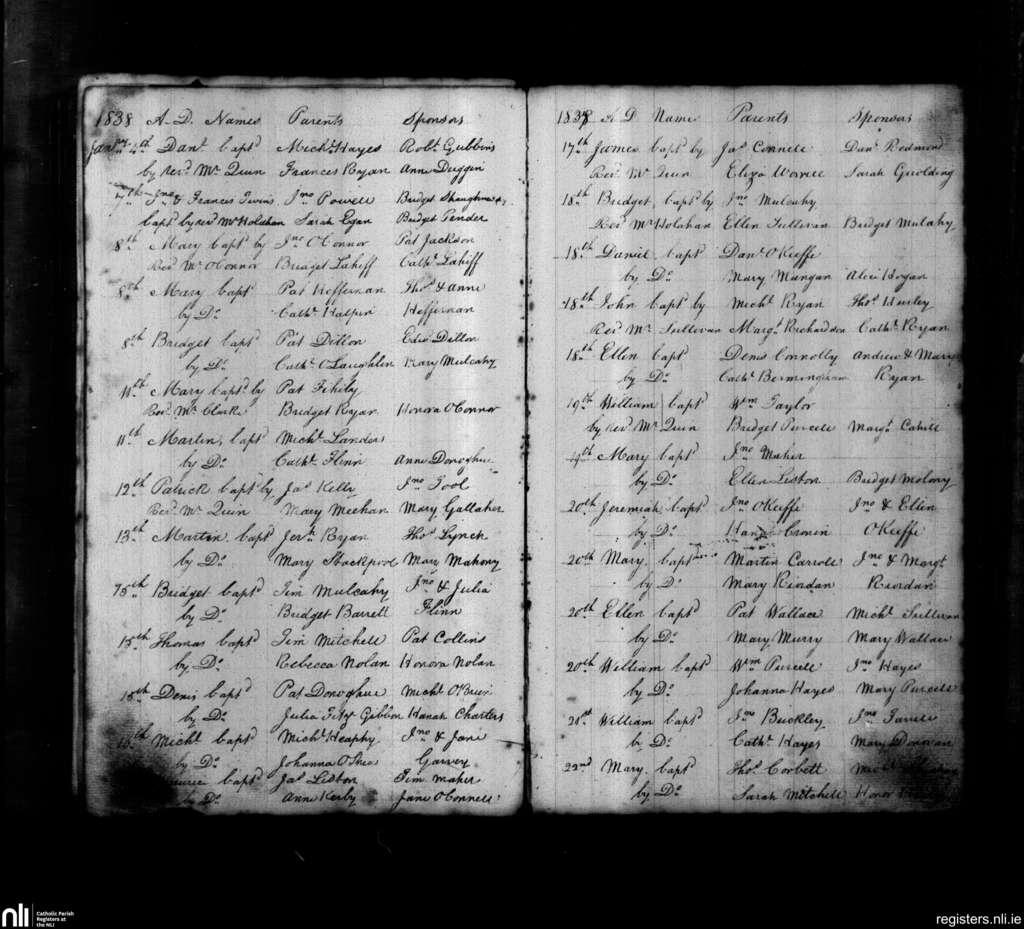 1838 A. D. Names Parents Sponsors
Jany 4th Danl. bapd Michl. Hayes Robt. Gubbins
by revd. Mr. Quin Frances Ryan Anne Duggin
7th Jno. & Francis Twins Jno. Powell Bridget
bapd by revd Mr Holahan Sarah Egan Bridget Pender
8th Mary bapd. by Jno O'Connor Pat Jackson
Revd Mr. O'Connor Bridget Lahiff Cathe. Lahiff
8th Mary bapd Pat Heffernan Thos. & Anne
by Do. Cathe. Halpin Heffernan
8th Bridget bapd Pat Dillon Edwd Dillon
by Do. Cathe. O'Laughlin Mary Mulcahy
11th Mary bapd. by Pat Fihily
Revd. Mr. Clarke Bridget Ryan Honora O'Connor
11th Martin, bapd Michl. Landers
by Do. Cathe. Flinn Anne Donoghue
12th Patrick bapd by Jas. Kelly Jno. Tool
Revd. Mr. Quin Mary Meehan Mary Gallaher
13th Martin bapd Jerh. Ryan Thos. Lynch
by Do. Mary Stackpool Mary Mahony
15th Bridget bapd Tim Mulcahy Jno. & Julia
by Do. Bridget Barrett Flinn
15th Thomas bapd Tim Mitchell Pat Collins
by Do. Rebecca Nolan Honora Nolan
15th Denis bapd Pat Donoghue Michl O'Brien
by Do. Julia Fitz Gibbon Hanah Charters
15th Michl bapd Michl. Heaphy Jno. & Jane
by D. Johanna O'Shea Garvey
bapd Jas. Liston Tim Maher
by Do. Anne Kerby Jane O'Connell
1838 A D Name Parents Sponsors
17th James bapd by Jas Connell Danl Redmond
Revd Mr Quin Eliza Sarah
18th Bridget, bapd by Jno Mulcahy
Revd Mr Holahan Ellen Sullivan Bridget Mulcahy
18th Daniel bapd Danl O'Keeffe
by Do. Mary Mungan Alice Hogan
18th John bapd by Michl Ryan Thos. Hurley
Revd Mr. Sullivan Margt. Richardson Cathe. Ryan
18th Ellen bapd Denis Connolly Andrew & Mary
by Do. Cathe. Bermingham Ryan
19th William bapd Wm Taylor
by revd Mr. Quin Bridget Purcell Margt. Cahill
19th Mary bapd Jno. Maher
by D. Ellen Liston Bridget Molony
20th Jeremiah bapd Jno. O'Keeffe Jno & Ellen
by D. Cronin O'Keeffe
20th Mary bapd Martin Carroll Jno & Margt.
by D. Mary Riordan Riordan
20th Ellen bapd Pat Wallace Michl. Sullivan
by Do. Mary Murry Mary Wallace
20th William bapd Wm Purcell Jno Hayes
by Do. Johanna Hayes Mary Purcell
21st William bapd Jno Buckley Jno
by Do. Cathe. Hayes Mary Donovan
22nd Mary bapd Thos. Corbett
by Do. Sarah Mitchell Honor
nli Catholic Parish
Registers at
the NLI
registers.nli.ie